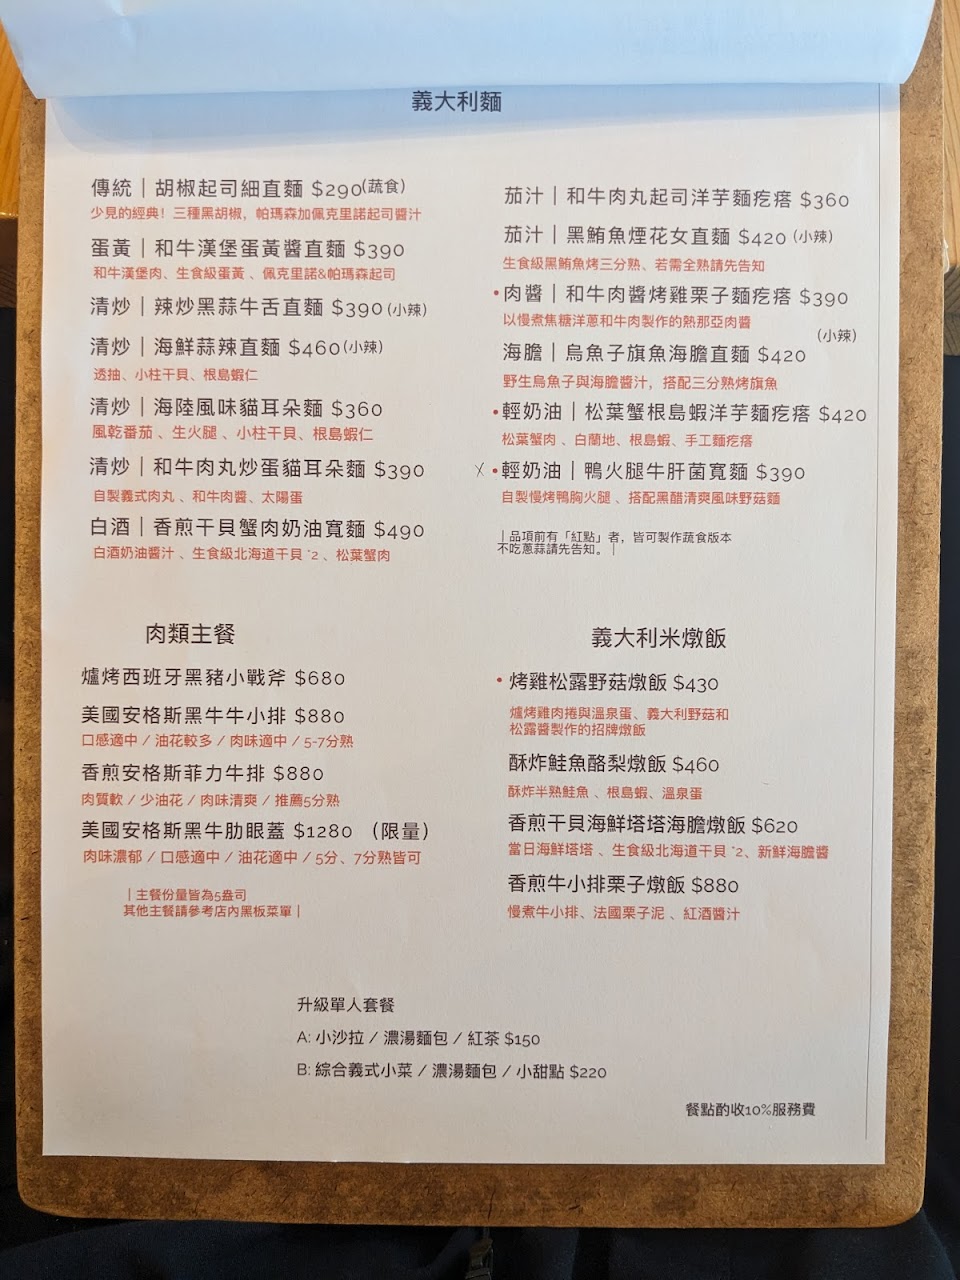 義大利麵
傳統｜胡椒起司細直麵 $290(蔬食)
少見的經典！三種黑胡椒，帕瑪森加佩克里諾起司醬汁
蛋黃｜和牛漢堡蛋黃醬直麵 $390
和牛漢堡肉、生食級蛋黃、佩克里諾&帕瑪森起司
清炒｜辣炒黑蒜牛舌直麵 $390(小辣)
清炒｜海鮮蒜辣直麵 $460(小辣)
透抽、小柱干貝、根島蝦仁
清炒｜海陸風味貓耳朵麵 $360
風乾番茄、生火腿、小柱干貝、根島蝦仁
清炒｜和牛肉丸炒蛋貓耳朵麵 $390
自製義式肉丸、和牛肉醬、太陽蛋
白酒｜香煎干貝蟹肉奶油寬麵 $490
白酒奶油醬汁、生食級北海道干貝 *2、松葉蟹肉
茄汁｜和牛肉丸起司洋芋麵疙瘩 $360
茄汁｜黑鮪魚煙花女直麵 $420 (小辣)
生食級黑鮪魚烤三分熟、若需全熟請先告知
•肉醬｜和牛肉醬烤雞栗子麵疙瘩 $390
以慢煮焦糖洋蔥和牛肉製作的熱那亞肉醬
(小辣)
海膽｜烏魚子旗魚海膽直麵 $420
野生烏魚子與海膽醬汁，搭配三分熟烤旗魚
•輕奶油｜松葉蟹根島蝦洋芋麵疙瘩 $420
松葉蟹肉、白蘭地、根島蝦、手工麵疙瘩
x •輕奶油｜鴨火腿牛肝菌寬麵 $390
自製慢烤鴨胸火腿、搭配黑醋清爽風味野菇麵
｜品項前有「紅點」者，皆可製作蔬食版本
不吃蔥蒜請先告知。｜
肉類主餐
爐烤西班牙黑豬小戰斧 $680
美國安格斯黑牛牛小排 $880
口感適中 / 油花較多 / 肉味適中 / 5-7分熟
香煎安格斯菲力牛排 $880
肉質軟 / 少油花 / 肉味清爽 / 推薦5分熟
美國安格斯黑牛肋眼蓋 $1280 （限量）
肉味濃郁 / 口感適中 / 油花適中 / 5分、7分熟皆可
｜主餐份量皆為5盎司
其他主餐請參考店內黑板菜單｜
義大利米燉飯
•烤雞松露野菇燉飯 $430
爐烤雞肉捲與溫泉蛋、義大利野菇和
松露醬製作的招牌燉飯
酥炸鮭魚酪梨燉飯 $460
酥炸半熟鮭魚、根島蝦、溫泉蛋
香煎干貝海鮮塔塔海膽燉飯 $620
當日海鮮塔塔、生食級北海道干貝 *2、新鮮海膽醬
香煎牛小排栗子燉飯 $880
慢煮牛小排、法國栗子泥、紅酒醬汁
升級單人套餐
A: 小沙拉 / 濃湯麵包 / 紅茶 $150
B: 綜合義式小菜 / 濃湯麵包 / 小甜點 $220
餐點酌收10%服務費